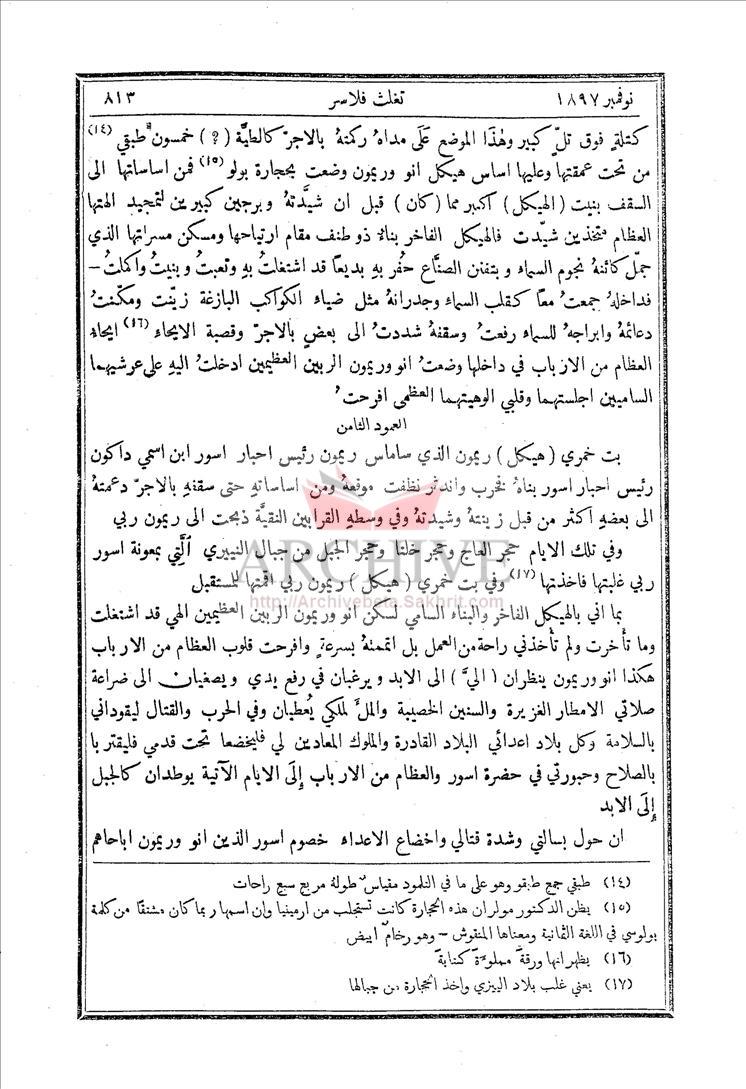 نوفمبر ١٨٩٧ تغلث فلاسر ٨١٣
كتلةٍ فوق تلٍّ كبير وهٰذا الموضع عَلَى مداهُ ركمتهُ بالاجرّ كالطيَّة (?) خمسون طبقي (١٤)
من تحت عمقتها وعليها اساس هيكل انو وريمون وضعت بحجارة بولو (١٥) فمن اساساتها الى
السقف بنيت (الهيكل) اكبر مما (كان) قبل ان شيَّدتهُ وبرجين كبيرين لتمجيد الهتها
العظام متخذين شيّدت فالهيكل الفاخر بناءً ذو طنف مقام ارتياحها ومسكن مسراتها الذي
جمّل كأنهُ نجوم السماء وبتفنن الصنَّاع حُفر بهِ بديعاً قد اشتغلتُ بهِ وتعبتُ وبنيتُ واكملتُ –
فداخلهُ جمعتُ معاً كقلب السماء وجدرانهُ مثل ضياء الكواكب البازغة زيّنت ومكّنتُ
دعائمهُ وابراجهُ للسماء رفعتُ وسقفهُ شددتُ الى بعضٍ بالاجرّ وقصبة الايحاء (١٦) ايحاء
العظام من الارباب في داخلها وضعتُ انو وريمون الربين العظيمين ادخلتُ اليهِ على عرشيهما
الساميين اجلستهما وقلبي الوهيتهما العظمى افرحتُ
العمود الثامن
بت خمري (هيكل) ريمون الذي ساماس ريمون رئيس احبار اسور ابن اسمي داكون
رئيس احبار اسور بناهُ فخرب واندثر نظفت موقعهُ ومن اساساتهِ حتى سقفهِ بالاجرّ دعمتهُ
الى بعضهِ اكثر من قبل زينتهُ وشيدتهُ وفي وسطهِ القرابين النقيَّة ذبحت الى ريمون ربي
وفي تلك الايام حجر العاج وحجر خلتا وحجر الجبل من جبال النييري الَّتي بمعونة اسور
ربي غلبتها فاخذتها (١٧) وفي بت خمري (هيكل) ريمون ربي اقمتها للمستقبل
بما اني بالهيكل الفاخر والبناء السامي لسكن انو وريمون الربين العظيمين الهي قد اشتغلت
وما تأخرت ولم تأخذني راحة من العمل بل اتممتهُ بسرعةٍ وافرحت قلوب العظام من الارباب
هكذا انو وريمون ينظران (اليَّ) الى الابد ويرغبان في رفع يدي ويصغيان الى ضراعة
صلاتي الامطار الغزيرة والسنين الخصيبة والملَّ لملكي يُعطيان وفي الحرب والقتال ليقوداني
بالسلامة وكل بلاد اعدائي البلاد القادرة والملوك المعادين لي فليخضعا تحت قدمي فليقتربا
بالصلاح وحبورتي في حضرة اسور والعظام من الارباب إِلَى الايام الآتية يوطدان كالجبل
إِلَى الابد
ان حول بسالتي وشدة قتالي واخضاع الاعداء خصوم اسور الذين انو وريمون اباحاهم
(١٤) طبقي جمع طبقو وهو على ما في التلمود مقياسٌ طولهُ مربع سبع راحات
(١٥) يظن الدكتور مولران هذه الحجارة كانت تستجلب من ارمينيا وان اسمها ربما كان مشتقًا من كلمة
بولوسي في اللغة الثمانية ومعناها المنقوش – وهو رخامٌ ابيض
(١٦) يظهر انها ورقةٌ مملوءةٌ كتابةً
(١٧) يعني غلب بلاد البيزي واخذ الحجارة من جبالها
ARCHIVE
http://Archivebeta.Sakhrit.com